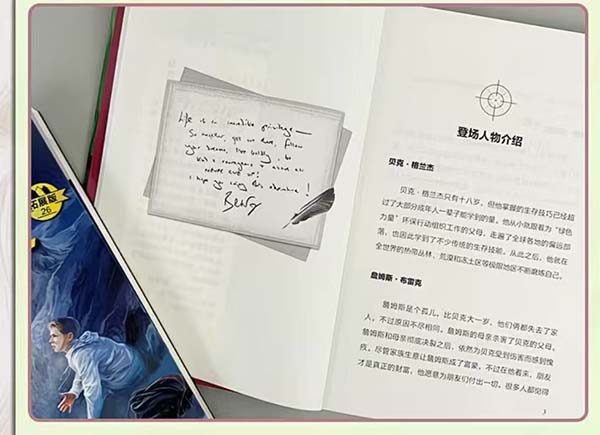 Life is an incredible privilege —
So whether you are there, follow
your dreams, live boldly, be
kind & courageous & above all
never give up!
I hope you enjoy this adventure!
Bear
拓展版
26
登场人物介绍
贝克·格兰杰
贝克·格兰杰只有十八岁，但他掌握的生存技巧已经超
过了大部分成年人一辈子能学到的量。他从小就跟着为“绿色
力量”环保行动组织工作的父母，走遍了全球各地的偏远部
落，也因此学到了不少传统的生存技能。从此之后，他就在
全世界的热带丛林、荒漠和冻土区等极限地区不断磨炼自己。
詹姆斯·布雷克
詹姆斯是个孤儿，比贝克大一岁，他们俩都失去了家
人，不过原因不尽相同。詹姆斯的母亲杀害了贝克的父母。
詹姆斯和母亲彻底决裂之后，依然为贝克受到伤害而感到愧
疚。尽管家族生意让詹姆斯成了富豪，不过在他看来，朋友
才是真正的财富，他愿意为朋友们付出一切。很多人都觉得
3